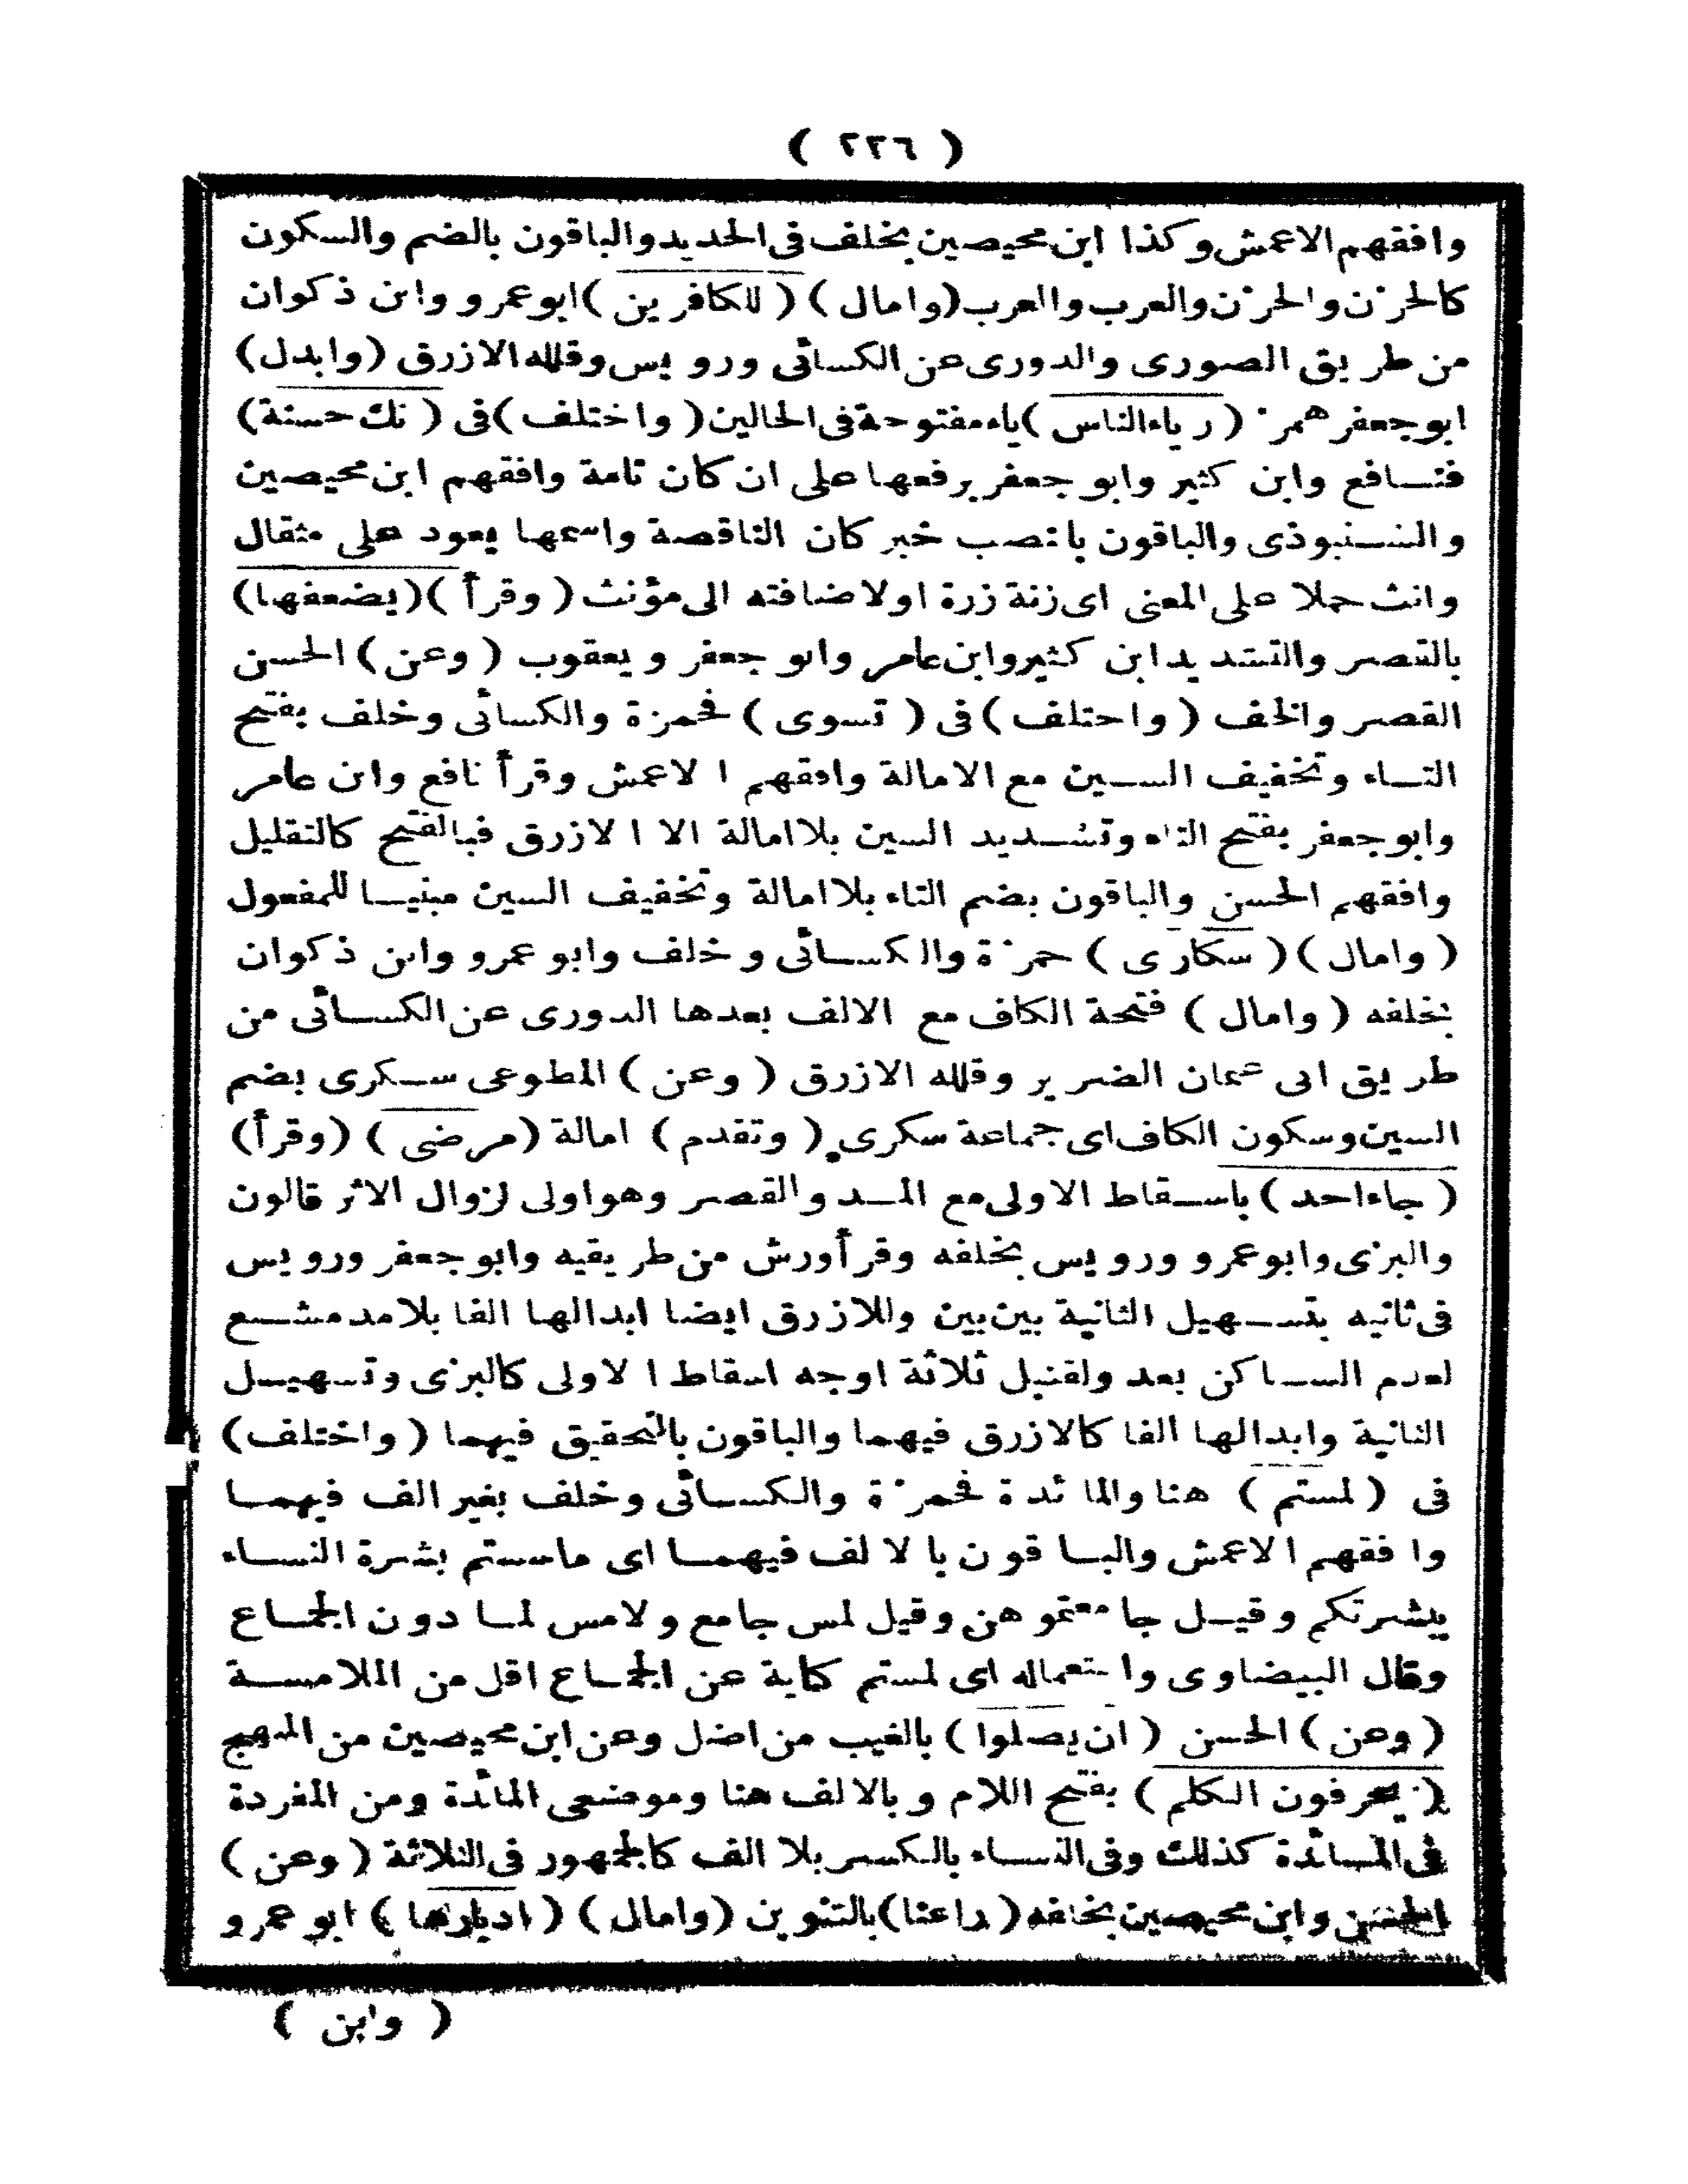 ( ٢٢٦ )
وافقهم الاعمش وكذا ابن محيصين بخلف فى الحديد والباقون بالضم والسكون
كالحزن والحزن والعرب والعرب (وامال) ( للكافرين ) ابو عمرو وابن ذكوان
من طريق الصورى والدورى عن الكسائى ورويس وقلله الازرق (وابدل)
ابو جعفر همز ( رياء الناس ) ياء مفتوحة فى الحالين ( واختلف ) فى ( تك حسنة)
فنافع وابن كثير وابو جعفر برفعها على ان كان تامة وافقهم ابن محيصين
والشنبوذى والباقون بانصب خبر كان الناقصة واسمها يعود على مثقال
وانث حملا على المعنى اى زنة زرة او لاضافته الى مؤنث ( وقرأ ) (يضعفها)
بالقصر والتشديد ابن كثير وابن عامر وابو جعفر ويعقوب ( وعن ) الحسن
القصر والخف ( واختلف ) فى ( تسوى ) فحمزة والكسائى وخلف بفتح
التاء وتخفيف السين مع الامالة وافقهم الاعمش وقرأ نافع وابن عامر
وابو جعفر بفتح التاء وتشديد السين بلا امالة الا الازرق فبالفتح كالتقليل
وافقهم الحسن والباقون بضم التاء بلا امالة وتخفيف السين مبنيا للمفعول
( وامال ) ( سكارى ) حمزة والكسائى وخلف وابو عمرو وابن ذكوان
بخلفه ( وامال ) فتحة الكاف مع الالف بعدها الدورى عن الكسائى من
طريق ابى عثمان الضرير وقلله الازرق ( وعن ) المطوعى سكرى بضم
السين وسكون الكاف اى جماعة سكرى ( وتقدم ) امالة (مرضى ) (وقرأ)
( جاء احد ) باسقاط الاولى مع المد والقصر وهو اولى لزوال الاثر قالون
والبزى وابو عمرو ورويس بخلفه وقرأ ورش من طريقيه وابو جعفر ورويس
فى ثانيه بتسهيل الثانية بين بين وللازرق ايضا ابدالها الفا بلا مد مشبع
لعدم الساكن بعد ولقنبل ثلاثة اوجه اسقاط الاولى كالبزى وتسهيل
الثانية وابدالها الفا كالازرق فيهما والباقون بالتحقيق فيهما ( واختلف )
فى ( لمستم ) هنا والمائدة فحمزة والكسائى وخلف بغير الف فيهما
وافقهم الاعمش والباقون بالالف فيهما اى ماسستم بشرة النساء
ببشرتكم وقيل جامعتموهن وقيل لمس جامع ولامس لما دون الجماع
وقال البيضاوى واستعماله اى لمستم كناية عن الجماع اقل من الملامسة
( وعن ) الحسن ( ان يصلوا ) بالغيب من اضل وعن ابن محيصين من المبهج
( يحرفون الكلم ) بفتح اللام وبالالف هنا وموضعى المائدة ومن المفردة
فى المائدة كذلك وفى النساء بالكسر بلا الف كالجمهور فى الثلاثة ( وعن )
الحسن وابن محيصين بخلفه ( راعنا) بالتنوين (وامال ) ( ادبارها ) ابو عمرو
( وابن )